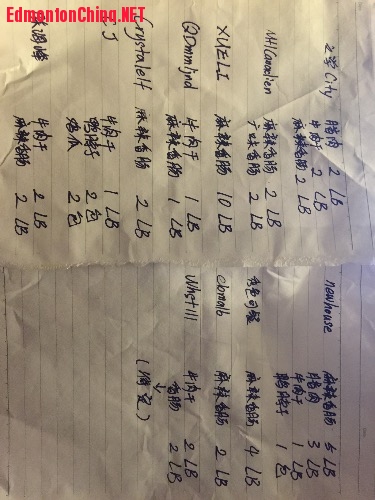 EdmontonChina.NET
City 腊肉 2 LB
牛肉干 2 LB
麻辣香肠 2 LB
NHCanadien 麻辣香肠 2 LB
广味香肠 2 LB
XUELI 麻辣香肠 10 LB
QDmmjnd 牛肉干 1 LB
麻辣香肠 1 LB
Crystalelf 麻辣香肠 2 LB
J 牛肉干 1 LB
鸭脖子 2 包
鸡爪 2 包
牛肉干 2 LB
麻辣香肠 2 LB
newhouse 麻辣香肠 5 LB
腊肉 3 LB
牛肉干 1 LB
鸭脖子 1 包
色可餐 麻辣香肠 4 LB
cbmalb 麻辣香肠 2 LB
Whstill 牛肉干 2 LB
香肠 2 LB